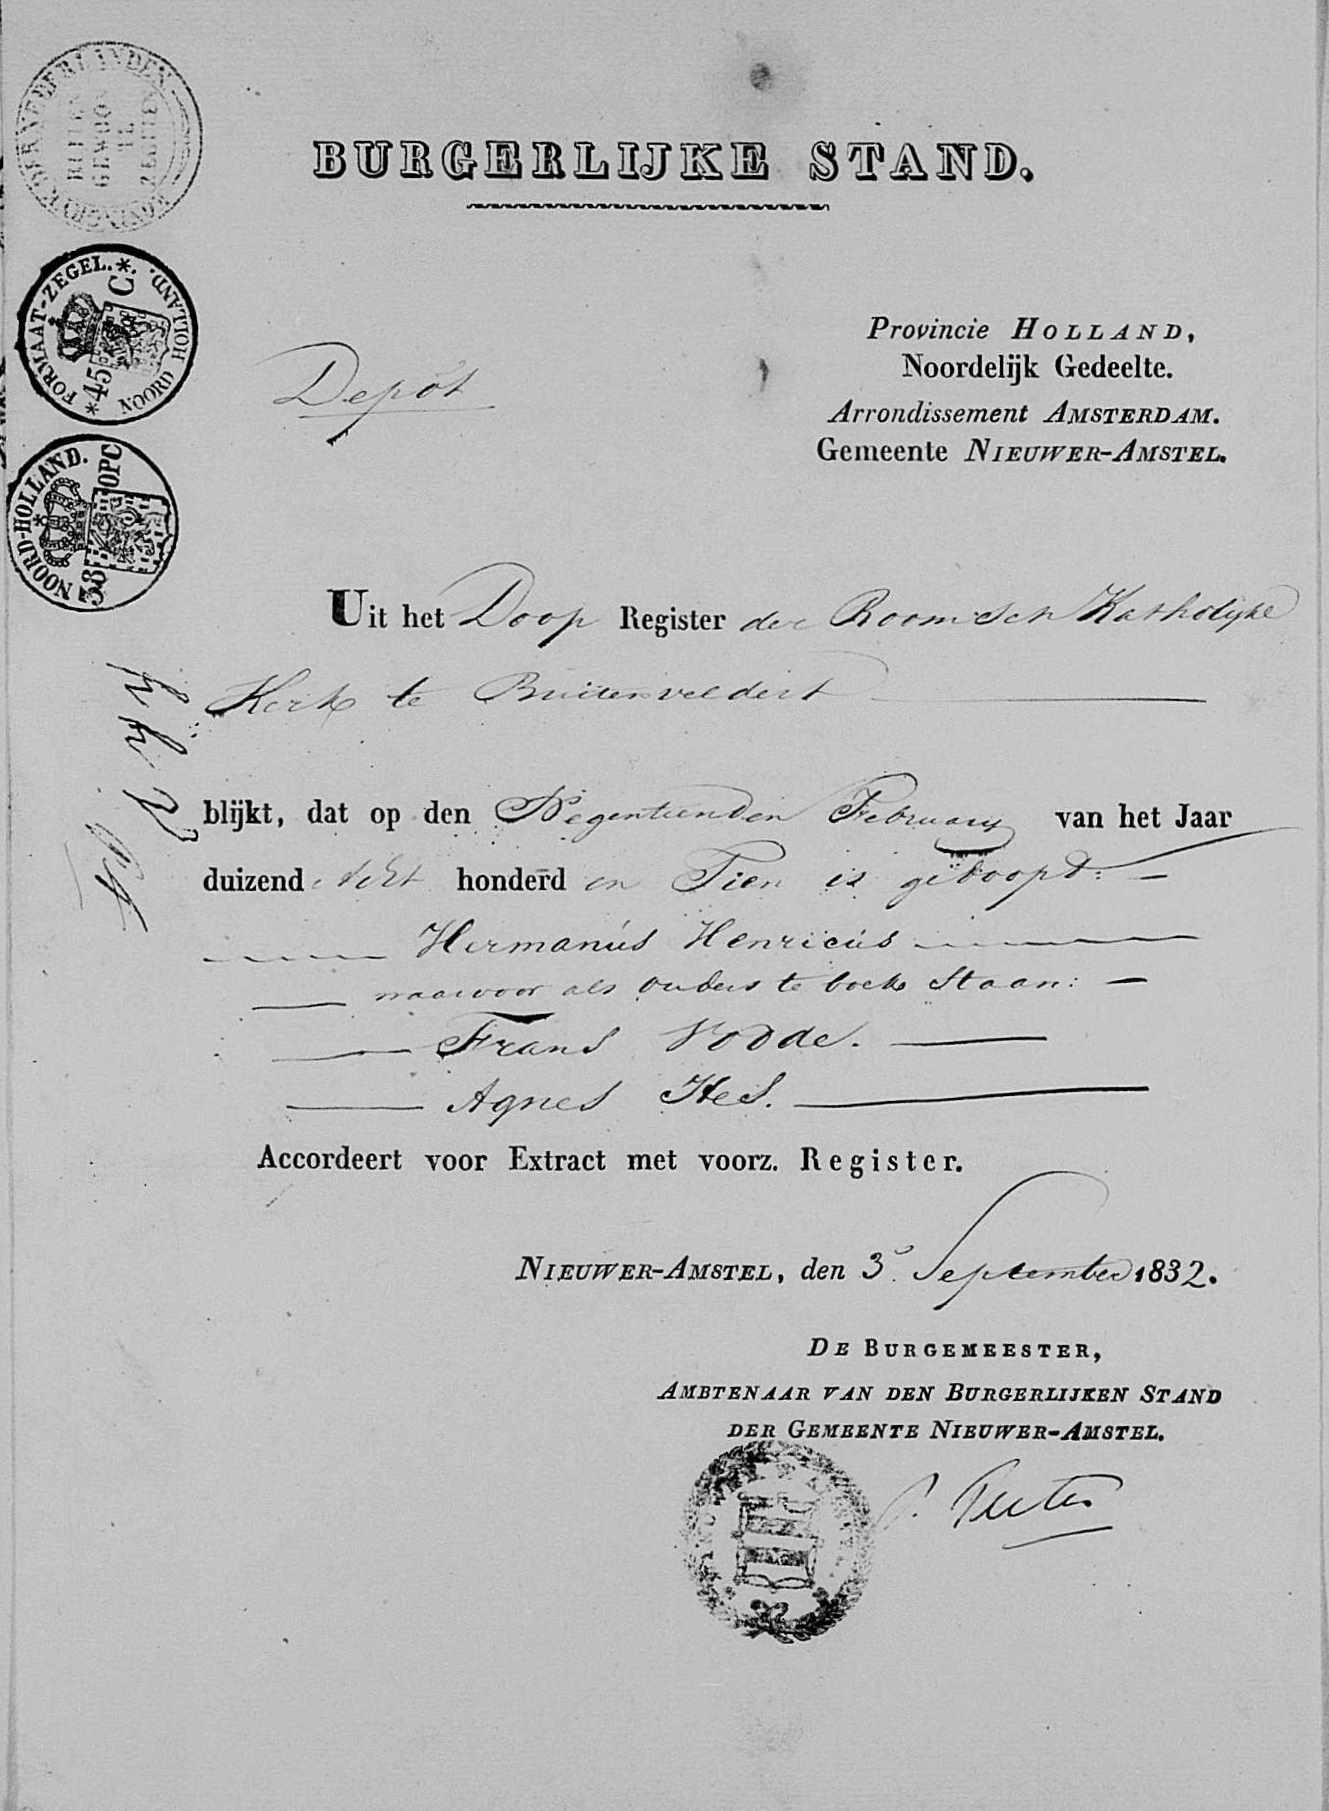 BURGERLIJKE STAND.
FORMAAT-ZEGEL. * NOORD HOLLAND.
* 45 C.
NOORD-HOLLAND.
38 OPC
Depôt
Provincie HOLLAND,
Noordelijk Gedeelte.
Arrondissement AMSTERDAM.
Gemeente NIEUWER-AMSTEL.
Uit het Doop Register der Roomsch Katholijke
Kerk te Buitenveldert
blijkt, dat op den Negentienden February van het Jaar
duizend Acht honderd en Tien is gedoopt:
Hermanús Henricús
waarvoor als ouders te boek Staan:
Frans Vodde.
Agnes Hes.
Accordeert voor Extract met voorz. Register.
NIEUWER-AMSTEL, den 3e September 1832.
DE BURGEMEESTER,
AMBTENAAR VAN DEN BURGERLIJKEN STAND
DER GEMEENTE NIEUWER-AMSTEL.